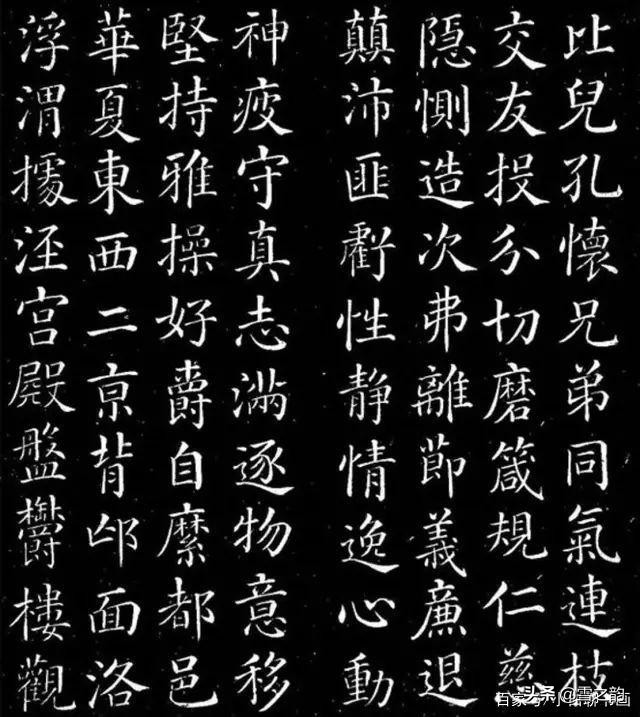 比兒孔懷兄弟同氣連枝
交友投分切磨箴規仁慈
隐惻造次弗離莭義廉退
顛沛匪虧性静情逸心動
神疲守真志滿逐物意移
堅持雅操好爵自縻都邑
華夏東西二亰背邙面洛
浮渭據涇宫殿盤鬱樓觀
头条 @雪之韵
百家号